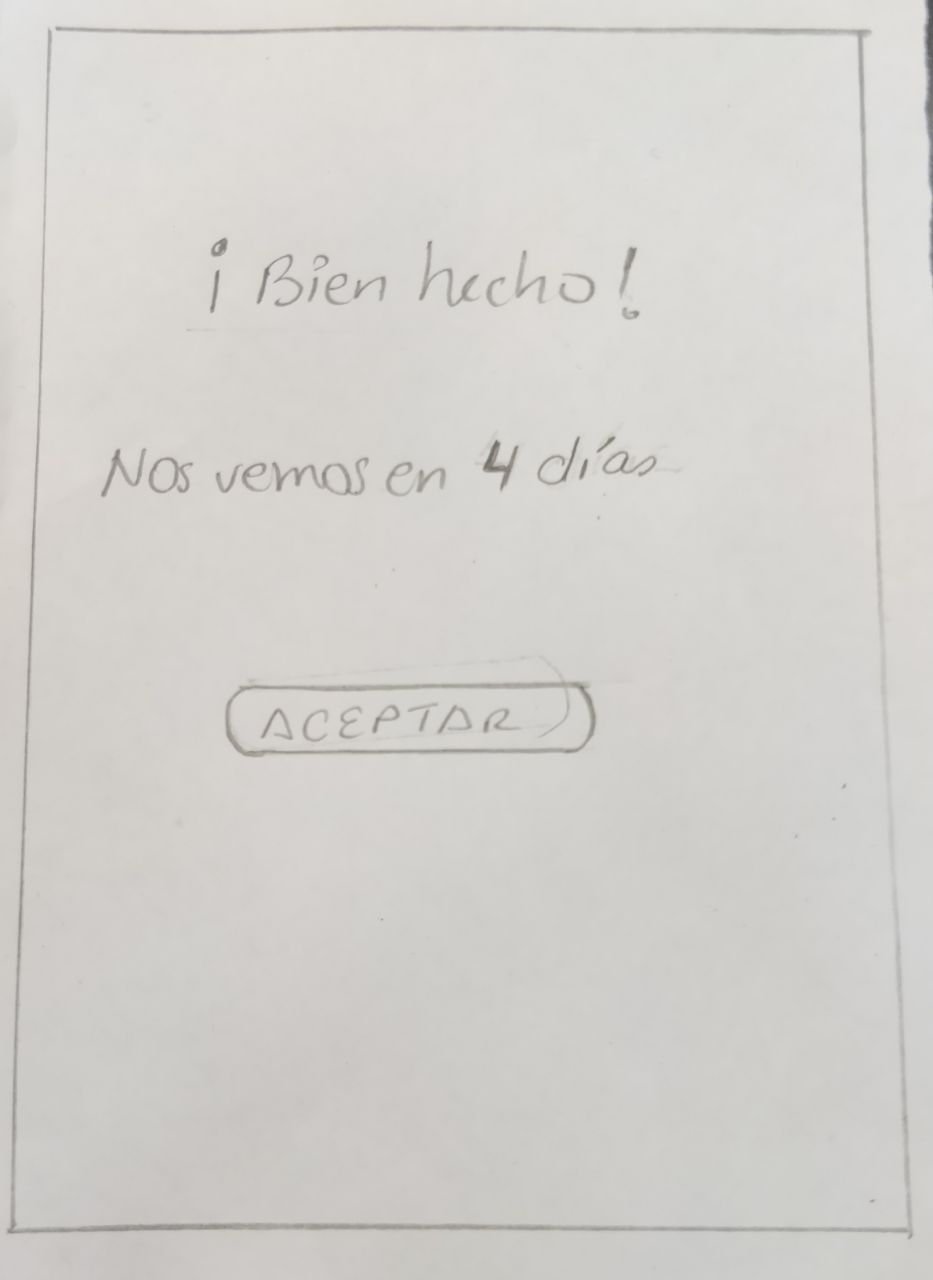 ¡Bien hecho!
Nos vemos en 4 días
ACEPTAR